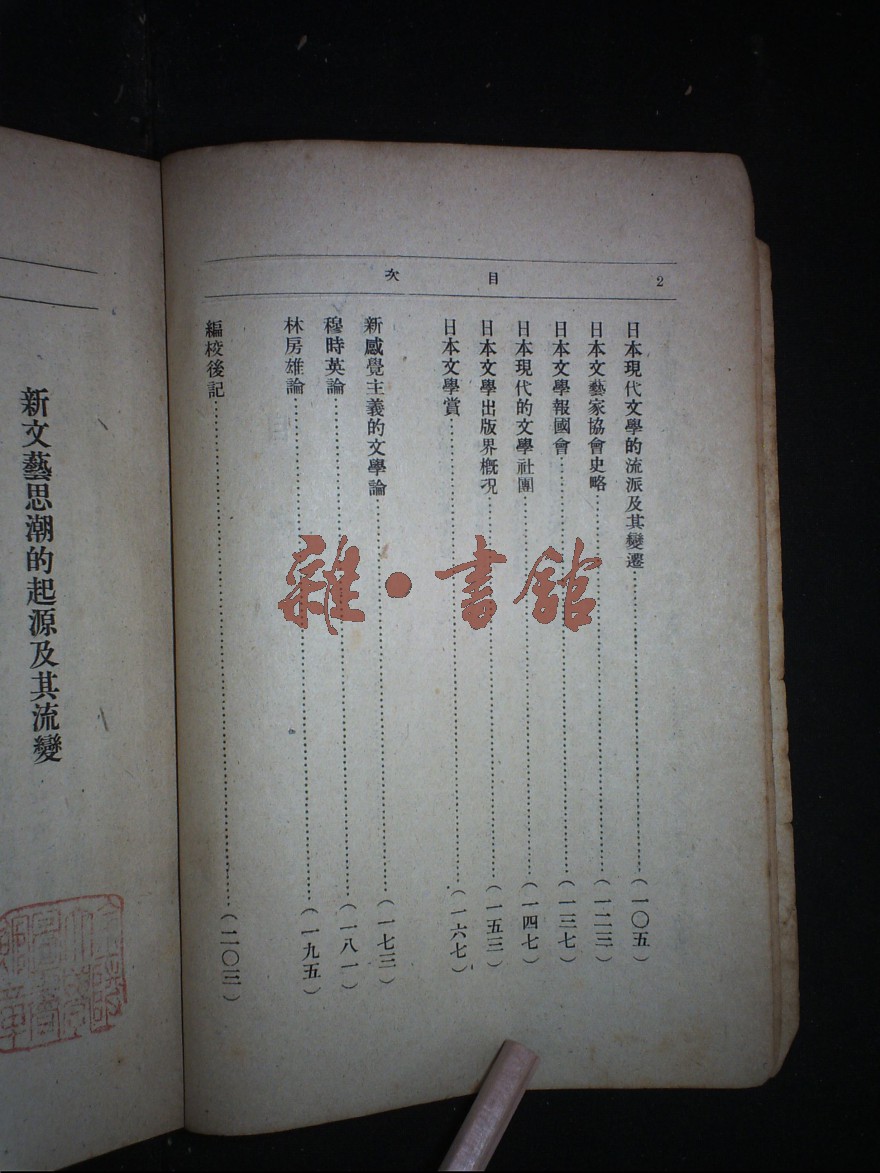 2 目次
日本現代文學的流派及其變遷……(一〇五)
日本文藝家協會史略……(一二三)
日本文學報國會……(一三七)
日本現代的文學社團……(一四七)
日本文學出版界概況……(一五三)
日本文學賞……(一六七)
新感覺主義的文學論……(一七三)
穆時英論……(一八一)
林房雄論……(一九五)
編校後記……(二〇三)
新文藝思潮的起源及其流變
雜·書館